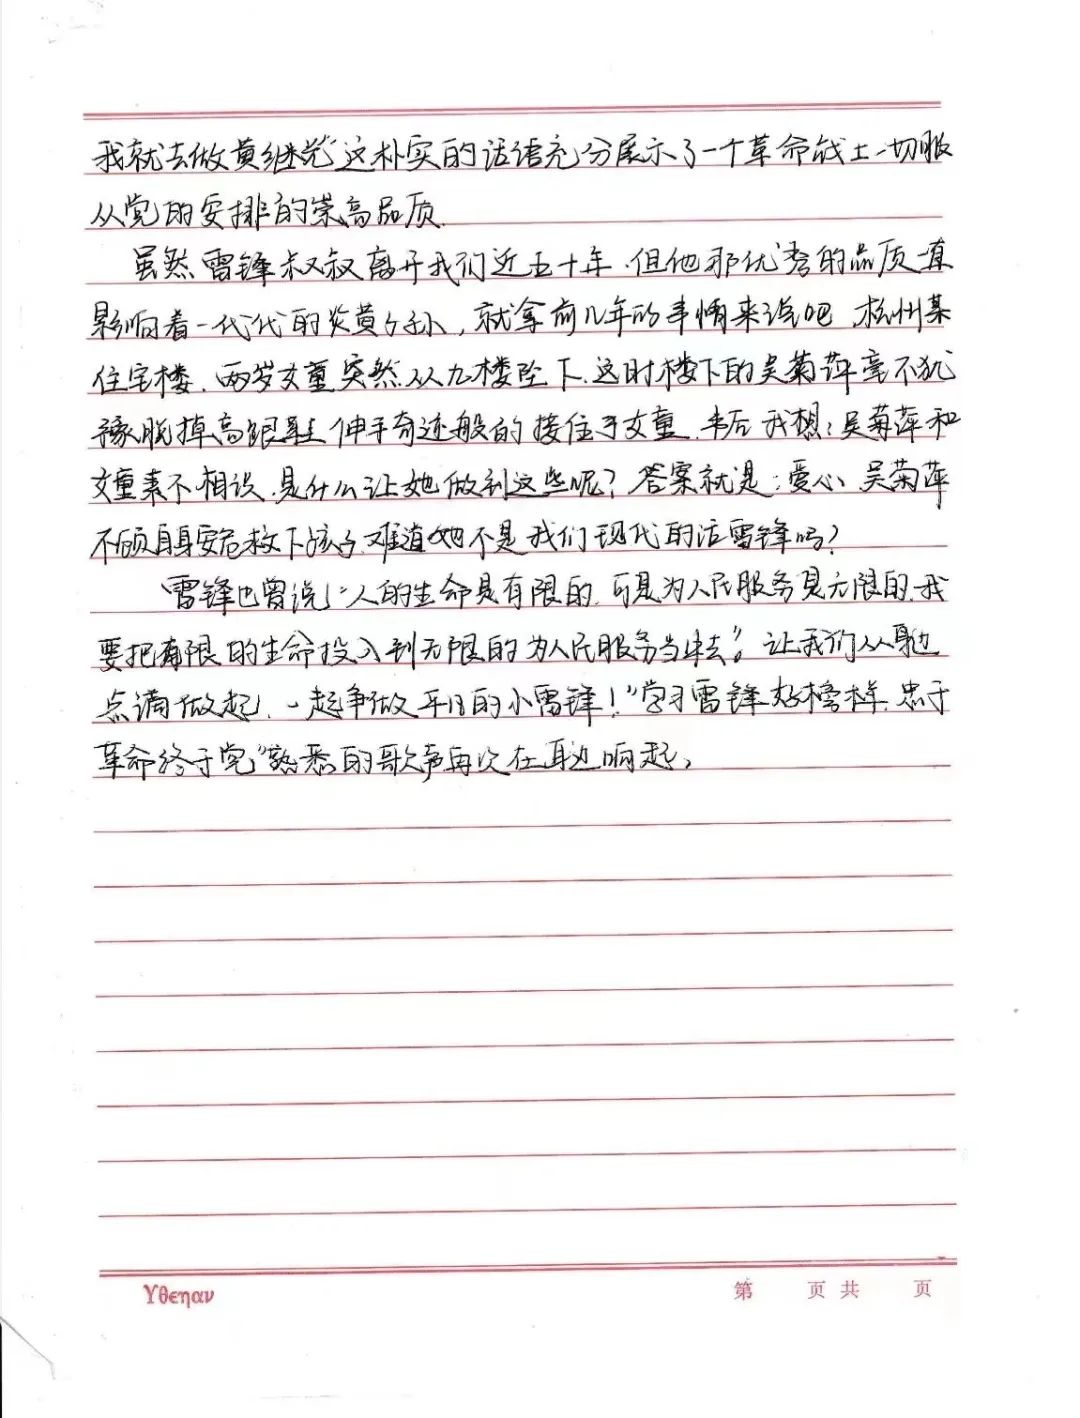 我就去做黄继光"这朴实的话语充分展示了一个革命战士一切服
从党的安排的崇高品质.
虽然雷锋叔叔离开我们近五十年.但他那优秀的品质一直
影响着一代代的炎黄子孙,就拿前几年的事情来说吧.杭州某
住宅楼.两岁女童突然从九楼坠下.这时楼下的吴菊萍毫不犹
豫脱掉高跟鞋伸手奇迹般的接住了女童.事后我想:吴菊萍和
女童素不相识.是什么让她做到这些呢?答案就是:爱心、吴菊萍
不顾自身安危救下孩子.难道她不是我们现代的活雷锋吗?
雷锋也曾说:"人的生命是有限的.可是为人民服务是无限的.我
要把有限的生命投入到无限的为人民服务当中去"。让我们从身边
点滴做起.一起争做平凡的小雷锋!"学习雷锋好榜样.忠于
革命终于党"熟悉的歌声再次在耳边响起,
Yθεηαν
第 页 共 页